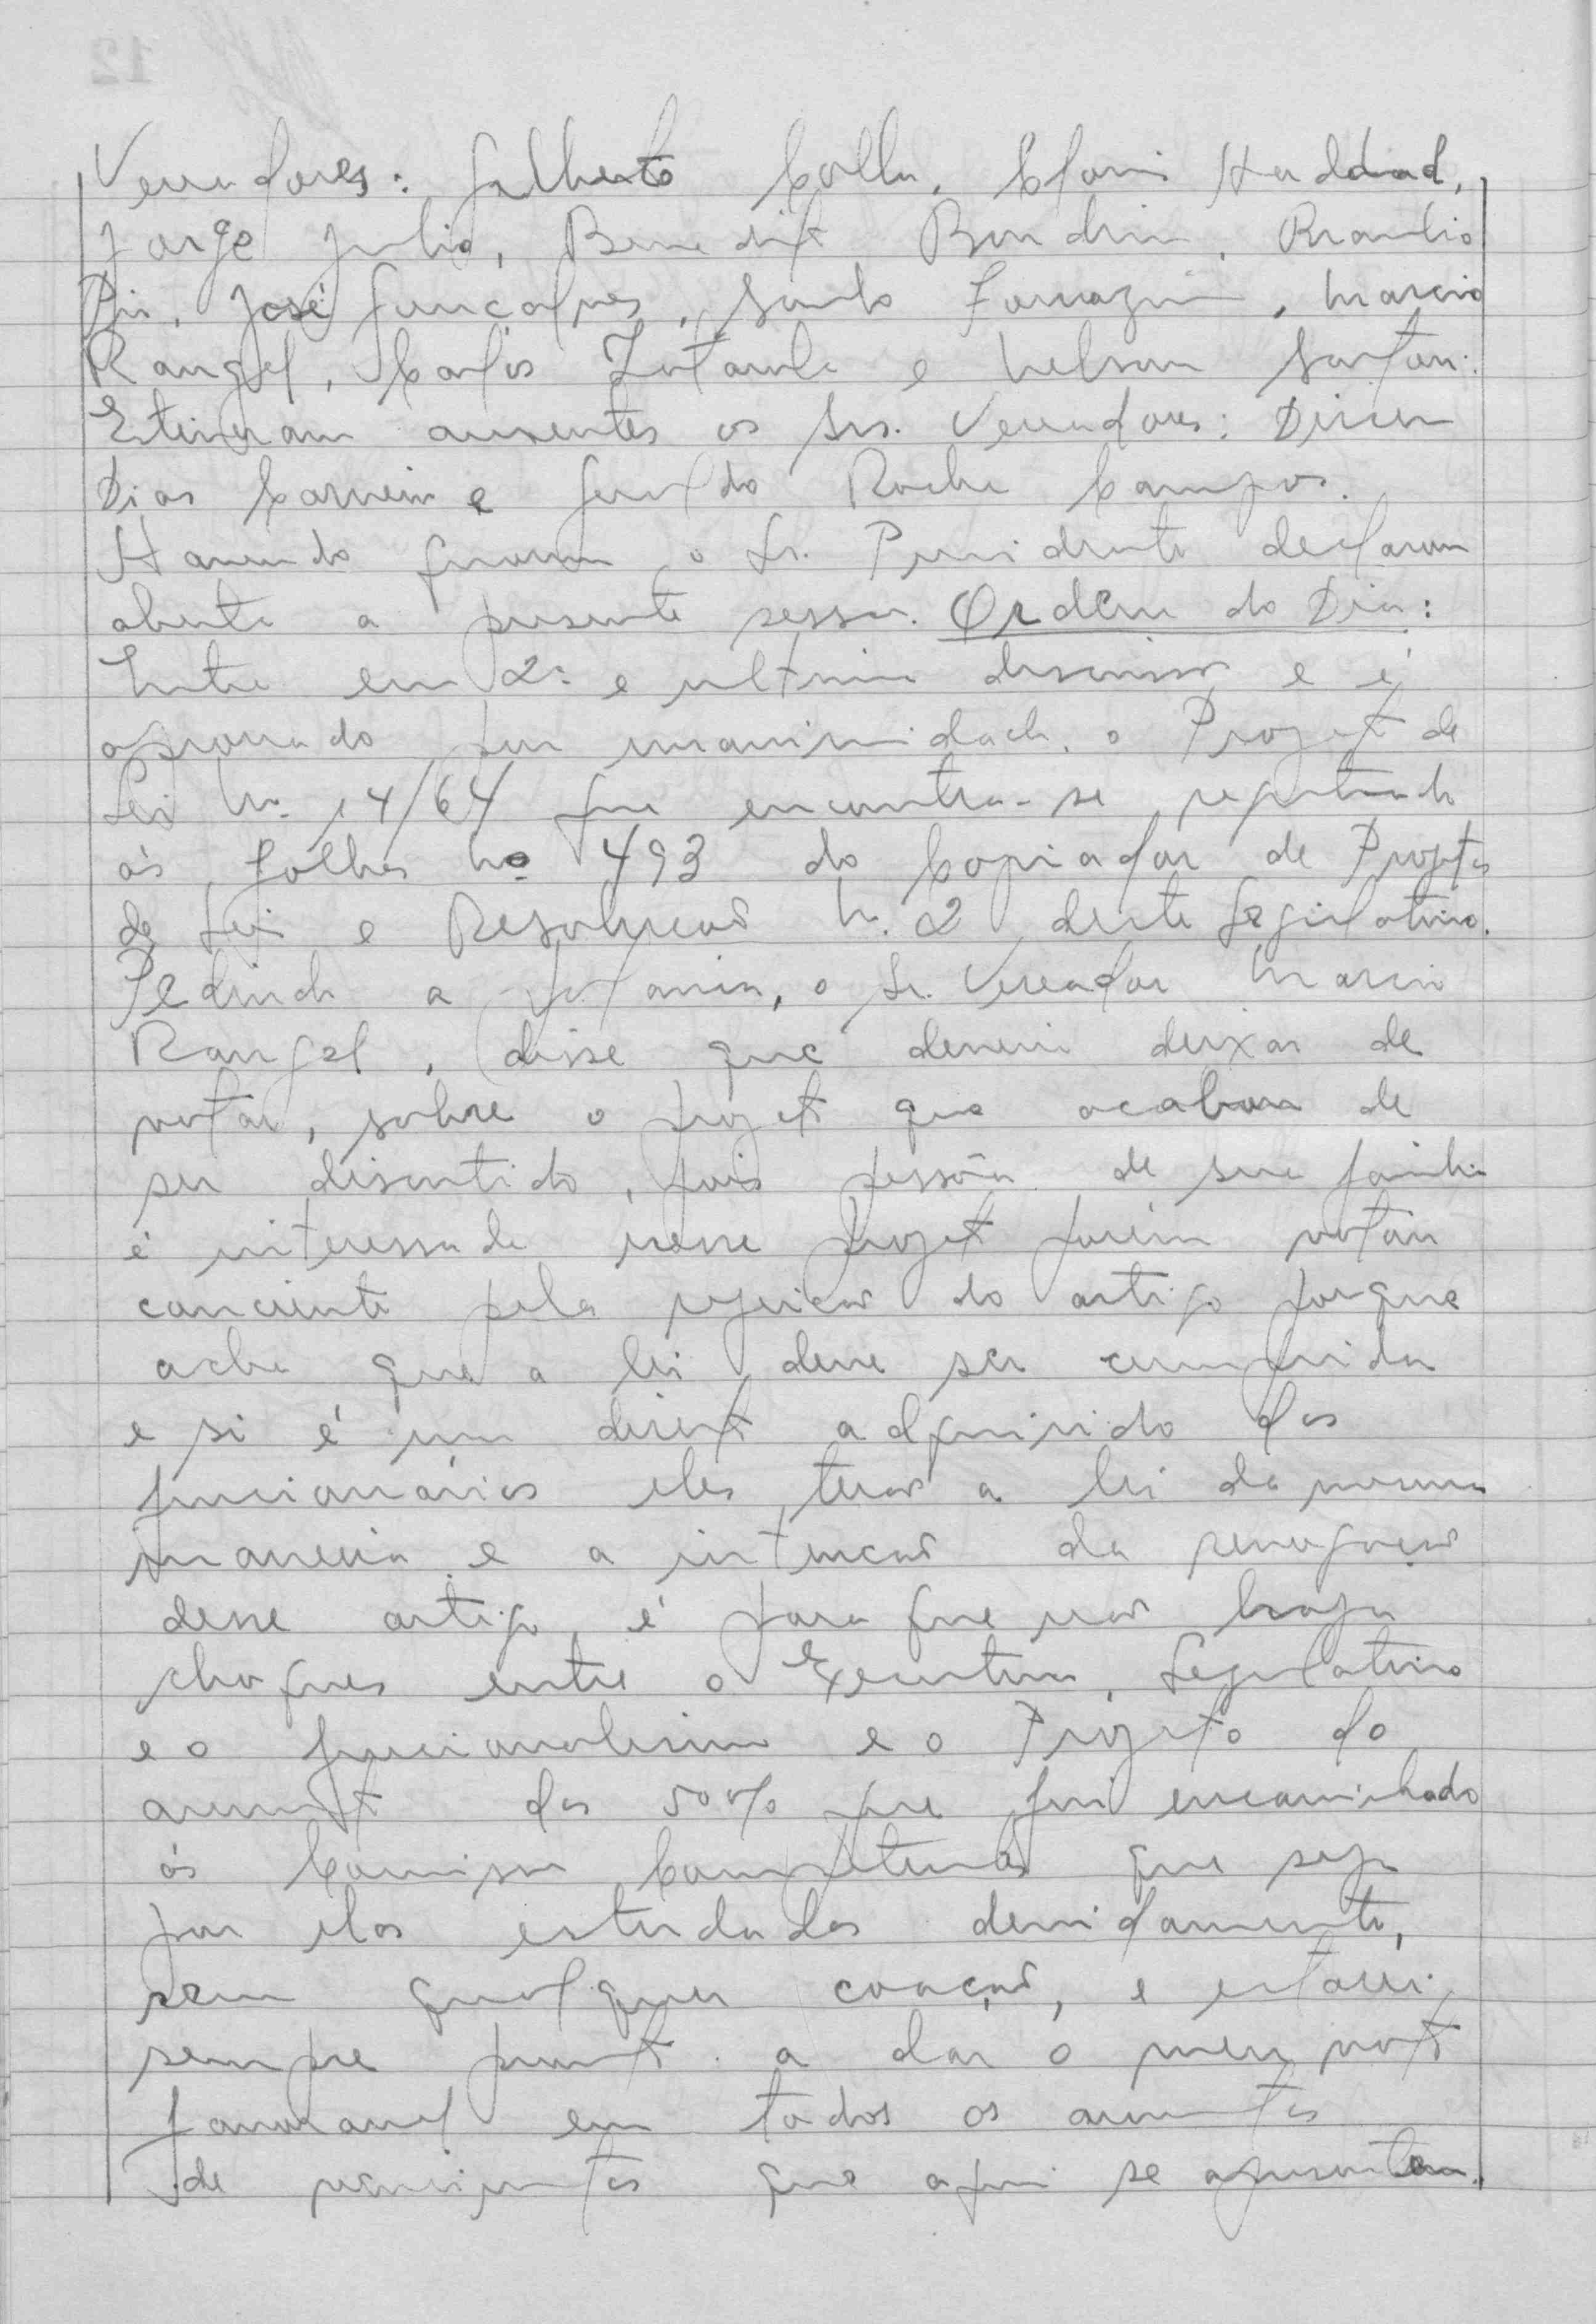 Vereadores: Galberto Colla, Clovis Haddad,
Jorge Julio, Benedito Bondrin, Braulio
Pio, José Gonçalves, Santo Ferrazin, Marcio
Rangel, Carlos Zotarelli e Nelson Sartori.
Estiveram ausentes os Srs. Vereadores: Dirceu
Dias Carneiro e Geraldo Rocha Campos.
Havendo quorum o Sr. Presidente declarou
aberta a presente sessão. Ordem do Dia:
Entra em 2ª e ultima discussão e é
aprovado por unanimidade, o Projeto de
Lei Nº 14/64 que encontra-se registrado
ás folhas Nº 493 do Copiador de Projetos
de Lei e Resolucão N. 2 deste Legislativo.
Pedindo a palavra, o Sr. Vereador Marcio
Rangel, disse que deveria deixar de
votar, sobre o projeto que acabou de
ser discutido, pois pessôa de sua familia
é interessada nesse projeto porém votou
conciente pela rejeicão do artigo porque
acha que a lei deve ser cumprida
e si é um direito adquirido dos
funcionários eles terão a lei da mesma
maneira e a intencão da revogação
desse artigo é para que não haja
choques entre o Executivo, Legislativo
e o funcionalismo e o Projeto do
aumento dos 50% que foi encaminhado
ás Comissão Competentes que seja
por elas estudados devidamente,
sem qualquer coação, e estarei
sempre pronto a dar o meu voto
favoravel em todos os aumentos
de vencimentos que aqui se apresentem.